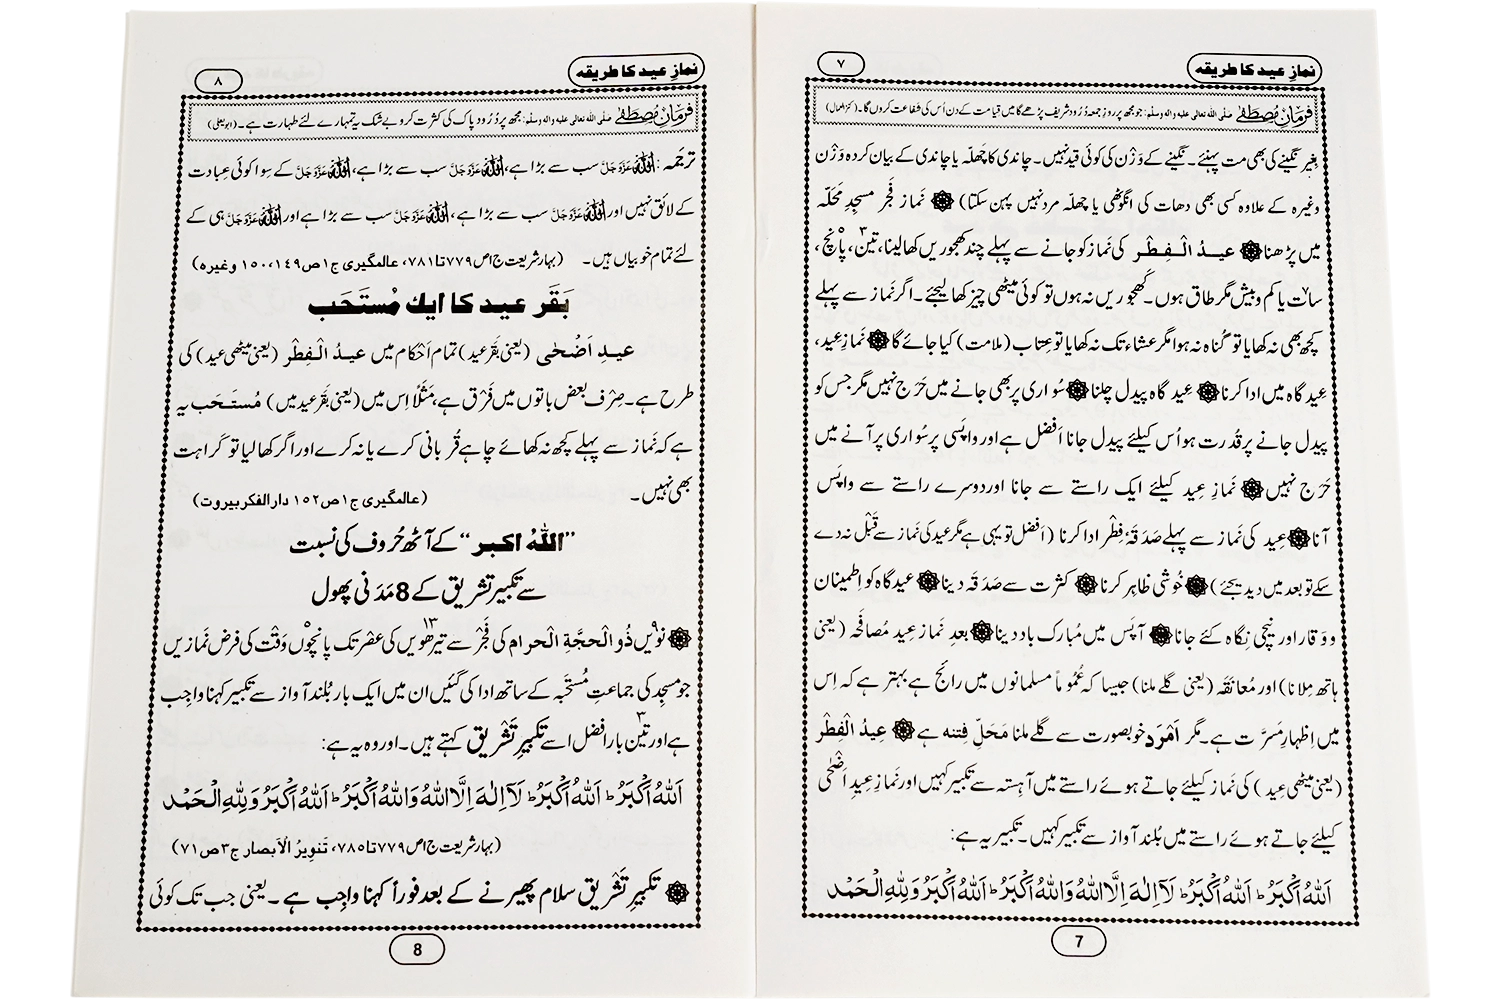 نمازِ عید کا طریقہ
۷
فرمانِ مصطفٰے صلی اللہ تعالیٰ علیہ واٰلہٖ وسلّم: جو مجھ پر روزِ جمعہ دُرُود شریف پڑھے گا میں قیامت کے دن اُس کی شفاعت کروں گا۔ (کنز العمال)
بغیر نگینے کی بھی مت پہنئے۔ نگینے کے وَزْن کی کوئی قید نہیں۔ چاندی کا چھلّہ یا چاندی کے بیان کردہ وَزْن
وغیرہ کے علاوہ کسی بھی دھات کی انگوٹھی یا چھلّہ مرد نہیں پہن سکتا) ۞ نَمازِ فَجْر مسجِدِ مَحَلّہ
میں پڑھنا ۞ عیدُ الْفِطْر کی نَماز کو جانے سے پہلے چند کھجوریں کھا لینا، تین۳، پانچ۵،
سات۷ یا کم و بیش مگر طاق ہوں۔ کَھجوریں نہ ہوں تو کوئی میٹھی چیز کھا لیجئے۔ اگر نَماز سے پہلے
کچھ بھی نہ کھایا تو گُناہ نہ ہوا مگر عشاء تک نہ کھایا تو عِتاب (ملامت) کیا جائے گا ۞ نَمازِ عید،
عید گاہ میں ادا کرنا ۞ عید گاہ پیدل چلنا ۞ سُواری پر بھی جانے میں حَرَج نہیں مگر جس کو
پیدل جانے پر قُدرت ہو اُس کیلئے پیدل جانا افضل ہے اور واپسی پر سُواری پر آنے میں
حَرَج نہیں ۞ نَمازِ عید کیلئے ایک راستے سے جانا اور دوسرے راستے سے واپَس
آنا ۞ عِید کی نَماز سے پہلے صَدَقۂ فِطْر ادا کرنا (اَفضل تو یِہی ہے مگر عید کی نَماز سے قَبْل نہ دے
سکے تو بعد میں دیدیجئے) ۞ خُوشی ظاہِر کرنا ۞ کثرت سے صَدَقہ دینا ۞ عید گاہ کو اِطمینان
و وَقار اور نیچی نِگاہ کئے جانا ۞ آپَس میں مُبارک باد دینا ۞ بعدِ نَمازِ عید مُصافَحہ (یعنی
ہاتھ مِلانا) اور مُعانَقہ (یعنی گلے ملنا) جیسا کہ عُمُوماً مسلمانوں میں رائج ہے بہتر ہے کہ اِس
میں اِظہارِ مَسرَّت ہے۔ مگر اَمْرَد خوبصورت سے گلے ملنا مَحَلِّ فِتنہ ہے ۞ عِیدُ الْفِطْر
(یعنی میٹھی عید) کی نَماز کیلئے جاتے ہوئے راستے میں آہستہ سے تکبیر کہیں اور نَمازِ عِیدِ اَضْحٰی
کیلئے جاتے ہوئے راستے میں بُلند آواز سے تکبیر کہیں۔ تکبیر یہ ہے:
اَللّٰهُ اَكْبَرُ ؕ اَللّٰهُ اَكْبَرُ ؕ لَآ اِلٰهَ اِلَّا اللّٰهُ وَاللّٰهُ اَكْبَرُ ؕ اَللّٰهُ اَكْبَرُ وَلِلّٰهِ الْحَمْد
7
نمازِ عید کا طریقہ
۸
فرمانِ مصطفٰے صلی اللہ تعالیٰ علیہ واٰلہٖ وسلّم: مجھ پر دُرُودِ پاک کی کثرت کرو بے شک یہ تمہارے لئے طہارت ہے۔ (ابو یعلیٰ)
ترجَمہ: اللہ عَزَّوَجَلَّ سب سے بڑا ہے، اللہ عَزَّوَجَلَّ سب سے بڑا ہے، اللہ عَزَّوَجَلَّ کے سِوا کوئی عِبادت
کے لائق نہیں اور اللہ عَزَّوَجَلَّ سب سے بڑا ہے، اللہ عَزَّوَجَلَّ سب سے بڑا ہے اور اللہ عَزَّوَجَلَّ ہی کے
لئے تمام خوبیاں ہیں۔ (بہارِ شریعت ج۱ ص۷۷۹ تا ۷۸۱، عالمگیری ج۱ ص۱۴۹، ۱۵۰ وغیرہ)
بَقَر عید کا ایک مُستَحَب
عیدِ اَضْحٰی (یعنی بَقَر عید) تمام اَحْکام میں عیدُ الْفِطْر (یعنی میٹھی عید) کی
طرح ہے۔ صِرْف بعض باتوں میں فَرْق ہے، مَثَلاً اِس میں (یعنی بَقَر عید میں) مُستَحَب یہ
ہے کہ نَماز سے پہلے کچھ نہ کھائے چاہے قُربانی کرے یا نہ کرے اور اگر کھا لیا تو کَراہت
بھی نہیں۔ (عالمگیری ج۱ ص۱۵۲ دار الفکر بیروت)
”اللّٰهُ اکبر“ کے آٹھ حُروف کی نسبت
سے تکبیرِ تشریق کے 8 مَدَنی پھول
۞ نویں۹ ذُو الْحِجَّةِ الْحرام کی فَجْر سے تیرھویں۱۳ کی عَصْر تک پانچوں وَقْت کی فرض نَمازیں
جو مسجِد کی جماعتِ مُستَحَبّہ کے ساتھ ادا کی گئیں ان میں ایک بار بُلند آواز سے تکبیر کہنا واجِب
ہے اور تین۳ بار افضل اسے تکبیرِ تَشْرِیق کہتے ہیں۔ اور وہ یہ ہے:
اَللّٰهُ اَكْبَرُ ؕ اَللّٰهُ اَكْبَرُ ؕ لَآ اِلٰهَ اِلَّا اللّٰهُ وَاللّٰهُ اَكْبَرُ ؕ اَللّٰهُ اَكْبَرُ وَلِلّٰهِ الْحَمْد
(بہارِ شریعت ج۱ ص۷۷۹ تا ۷۸۵، تَنوِیرُ الْاَبصار ج۳ ص۷۱)
۞ تکبیرِ تَشْرِیق سلام پھیرنے کے بعد فوراً کہنا واجِب ہے۔ یعنی جب تک کوئی
8